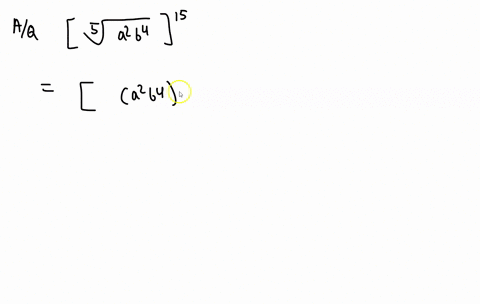 A/Q [ ⁵√a²b⁴ ]¹⁵
= [ (a²b⁴)